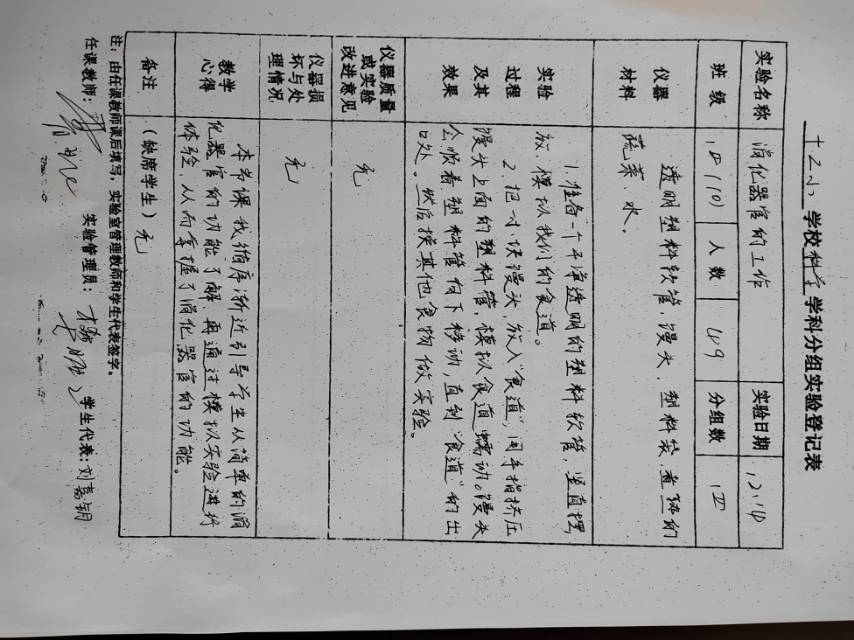 十二小学校科学学科分组实验登记表
实验名称 消化器官的工作 实验日期 12.14
班级 四(10) 人数 49 分组数 四
仪器材料 透明塑料软管、馒头、塑料袋、煮熟的
蔬菜、水。
实验过程及其效果 1.准备一个干净透明的塑料软管,竖直摆
放,模拟我们的食道。
2.把小块馒头放入“食道”,用手指挤压
馒头上面的塑料管,模拟食道蠕动。馒头
会顺着塑料管向下移动,直到“食道”的出
口处。然后换其他食物做实验。
仪器质量或实验改进意见 无
仪器损坏与处理情况 无
教学心得 本节课我循序渐近引导学生从简单的消
化器官的功能了解,再通过模拟实验进行
体验,从而掌握了消化器官的功能。
备注 (缺席学生)无
注:由任课教师课后填写,实验室管理教师和学生代表签字。
任课教师: 实验管理员: 学生代表:刘嘉钥